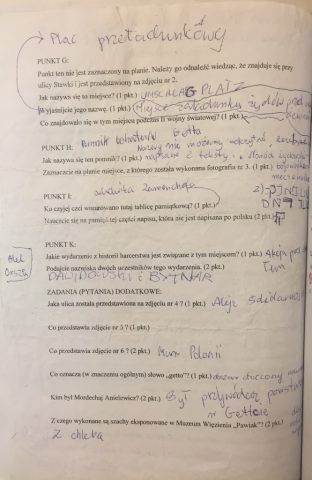 Plac przeładunkowy
PUNKT G:
Punkt ten nie jest zaznaczony na planie. Należy go odnaleźć wiedząc, że znajduje się przy
ulicy Stawki i jest przedstawiony na zdjęciu nr 2.
Jak nazywa się to miejsce? (1 pkt.) UMSCHLAGPLATZ
Wyjaśnijcie jego nazwę. (1 pkt.) Miejsce załadunku żydów przed
Co znajdowało się w tym miejscu podczas II wojny światowej? (1 pkt.)
PUNKT H: Pomnik bohaterów Getta
Jak nazywa się ten pomnik? (1 pkt.) napisane z tekstu
Zaznaczcie na planie miejsce, z którego została wykonana fotografia nr 3. (1 pkt.)
PUNKT I: Ludwika Zamenhofa
Ku czyjej czci wmurowano tutaj tablicę pamiątkową? (1 pkt.)
Nauczcie się na pamięć tej części napisu, która nie jest napisana po polsku (2 pkt.)
PUNKT K:
Jakie wydarzenie z historii harcerstwa jest związane z tym miejscem? (1 pkt.) Akcja pod
Podajcie nazwiska dwóch uczestników tego wydarzenia. (2 pkt.)
BYTNAR
ZADANIA (PYTANIA) DODATKOWE:
Jaka ulica została przedstawiona na zdjęciu nr 4 ? (1 pkt.) Aleje Solidarności
Co przedstawia zdjęcie nr 5 ? (1 pkt.)
Co przedstawia zdjęcie nr 6 ? (2 pkt.) Mur Polonii
Co oznacza (w znaczeniu ogólnym) słowo „getto"? (1 pkt.)
Kim był Mordechaj Anielewicz? (2 pkt.) Był przywódcą powstania
w Getcie
Z czego wykonane są szachy eksponowane w Muzeum Więzienia „Pawiak"? (2 pkt.)
Z chleba